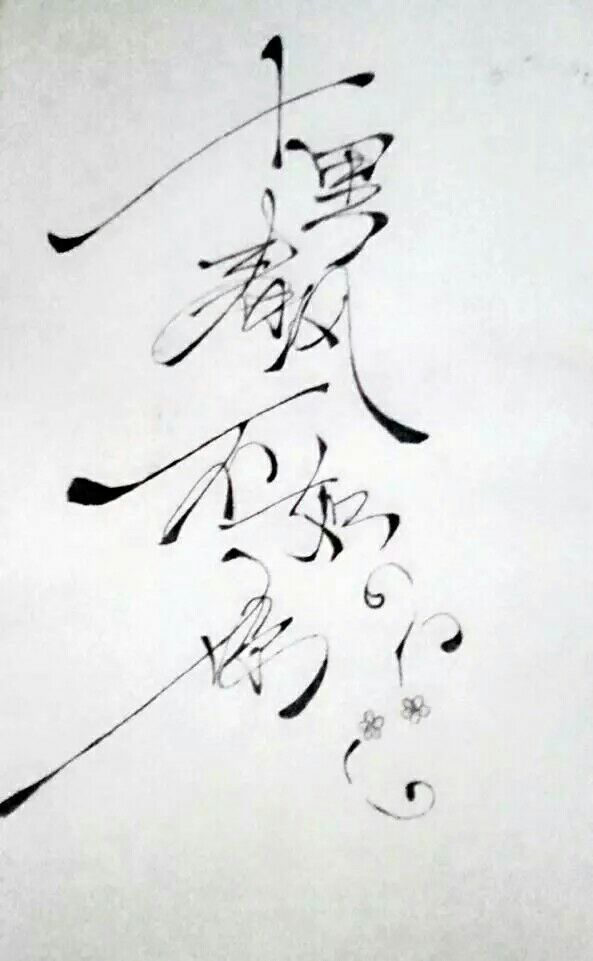 十里春风不如你